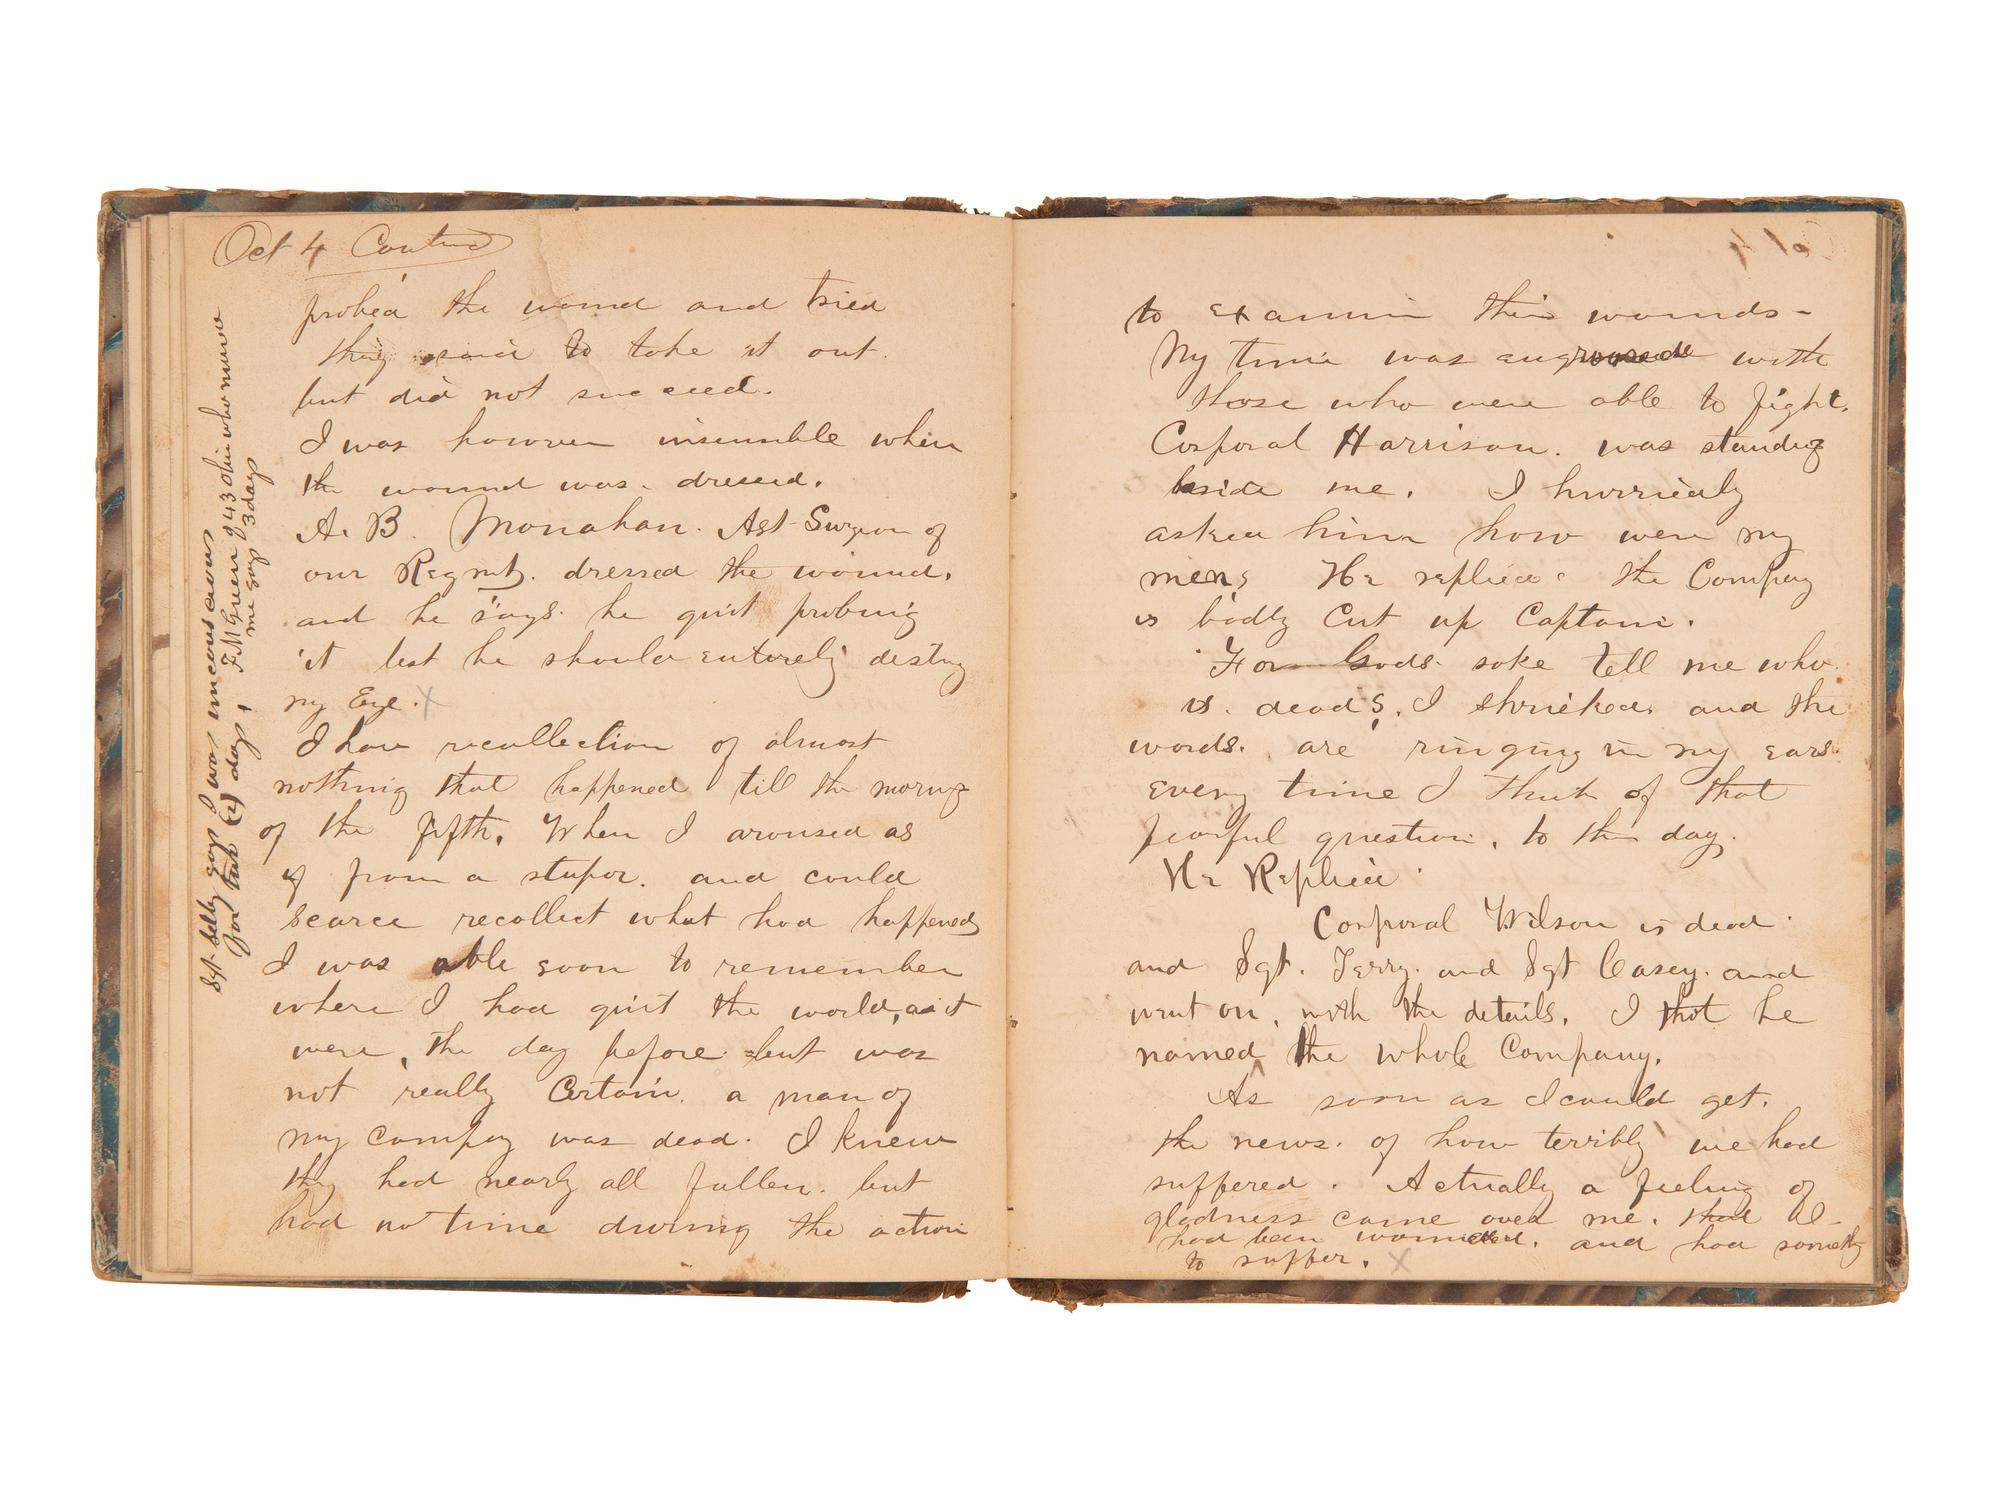 Oct 4 Contnd
probed the wound and tried
they said to take it out.
but did not succeed.
I was however insensible when
the wound was. dressed.
A. B. Monahan. Ast Surgeon of
our Regmt. dressed the wound.
and he says. he quit probing
it lest he should entirely destroy
my Eye. X
I have recollection of almost
nothing that happened till the morng
of the fifth. When I aroused as
if from a stupor. and could
scarce recollect what had happened
I was able soon to remember
where I had quit the world, as it
were, the day before but was
not really Certain. a man of
my compay was dead. I knew
they had nearly all fallen. but
had no time during the action
Sgt Selby says I was unconscious
for two (2) days, F. M Green of 43 Ohio who nurse
me say 3 days
to examin their wounds-
My time was with
those who were able to fight.
Corporal Harrison. was standig
beside me. I hurriedly
asked him how were my
men? He replied: the Compay
is badly Cut up Captain.
For Gods. sake tell me who.
is. dead?. I shrieked. and the
words. are ringing in my ears.
every time I think of that
fearful question. to this day.
He Replied
Corporal Wilson is dead.
and Sgt. Terry. and Sgt Casey. and
went on, with the details. I thot he
named the whole Company.
As soon as I could get.
the news. of how terribly we had
suffered. Actually a feeling of
gladness came over me. that
had been wounded. and had somethg
to suffer. X